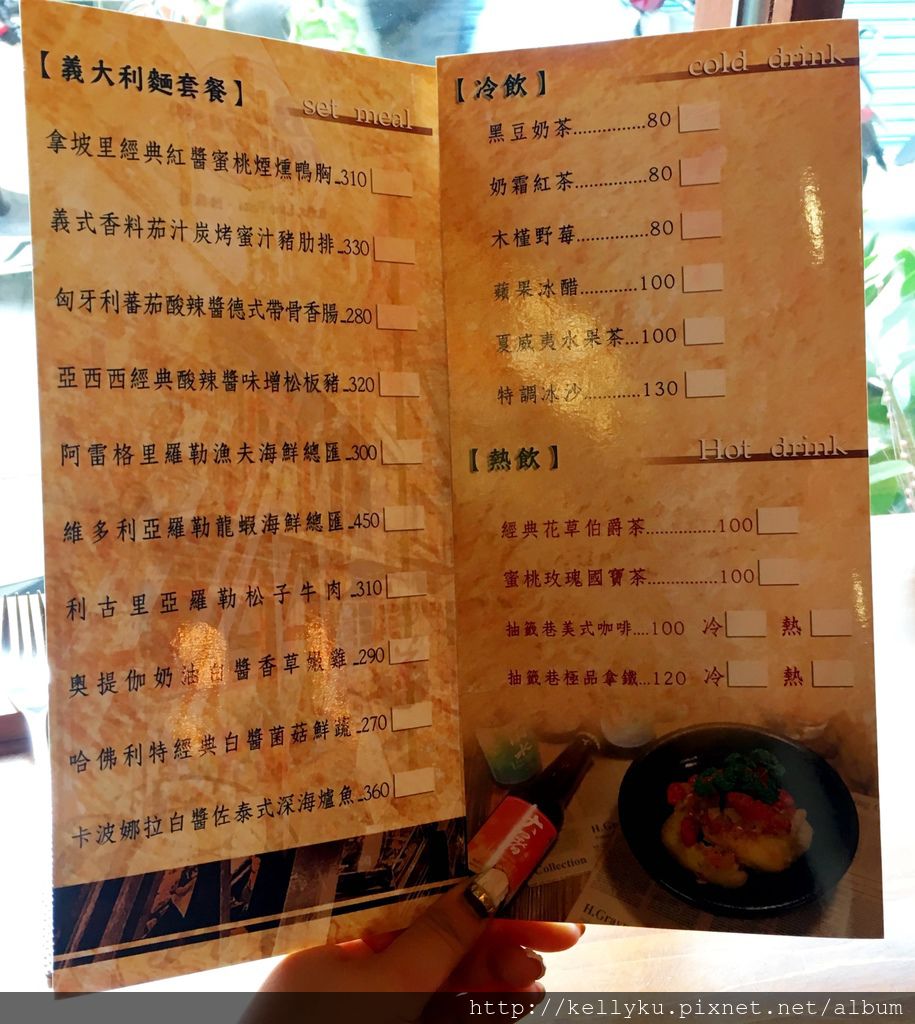 【義大利麵套餐】
set meal
拿坡里經典紅醬蜜桃煙燻鴨胸...310
義式香料茄汁炭烤蜜汁豬肋排...330
匈牙利蕃茄酸辣醬德式帶骨香腸...280
亞西西經典酸辣醬味增松板豬...320
阿雷格里羅勒漁夫海鮮總匯...300
維多利亞羅勒龍蝦海鮮總匯...450
利古里亞羅勒松子牛肉...310
奧提伽奶油白醬香草嫩雞...290
哈佛利特經典白醬菌菇鮮蔬...270
卡波娜拉白醬佐泰式深海爐魚...360
【冷飲】
cold drink
黑豆奶茶...............80
奶霜紅茶...............80
木槿野莓...............80
蘋果冰醋............100
夏威夷水果茶...100
特調冰沙............130
【熱飲】
Hot drink
經典花草伯爵茶...............100
蜜桃玫瑰國寶茶...............100
抽籤巷美式咖啡....100 冷 熱
抽籤巷極品拿鐵...120 冷 熱
Collection
H.Gra
http://kellyku.pixnet.net/album